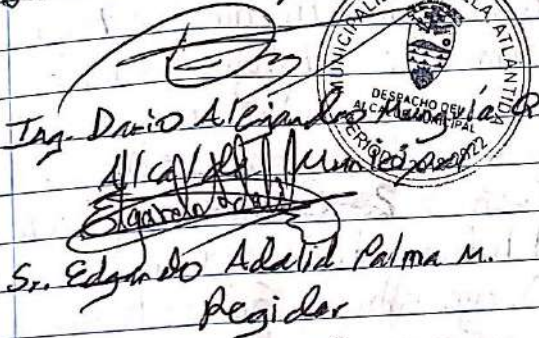 MUNICIPALI
LA, ATLANTIDA
DESPACHO DEL
ALCALDE MUNICIPAL
Ing. Dario Alejandro Munguía Q
Alcalde Municipal
Edgardo Adalid
Sr. Edgardo Adalid Palma M.
Regidor